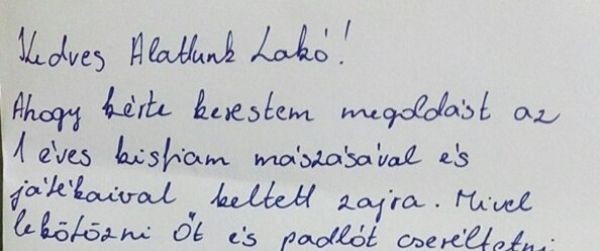 Kedves Alattunk Lakó!
Ahogy kérte kerestem megoldást az
1 éves kisfiam mászásával és
játékaival keltett zajra. Mivel
lekötözni Őt és padlót cseréltetni